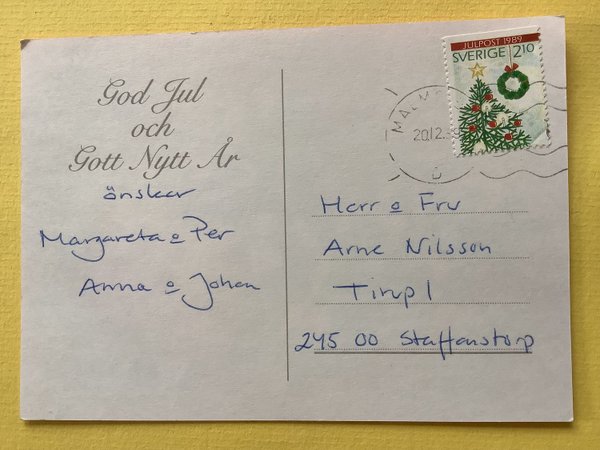 God Jul
och
Gott Nytt År
önskar
Margareta o Per
Anna o Johan
JULPOST 1989
SVERIGE 2.10
MALMÖ
20.12.
Herr o Fru
Arne Nilsson
Tirup 1
245 00 Staffanstorp